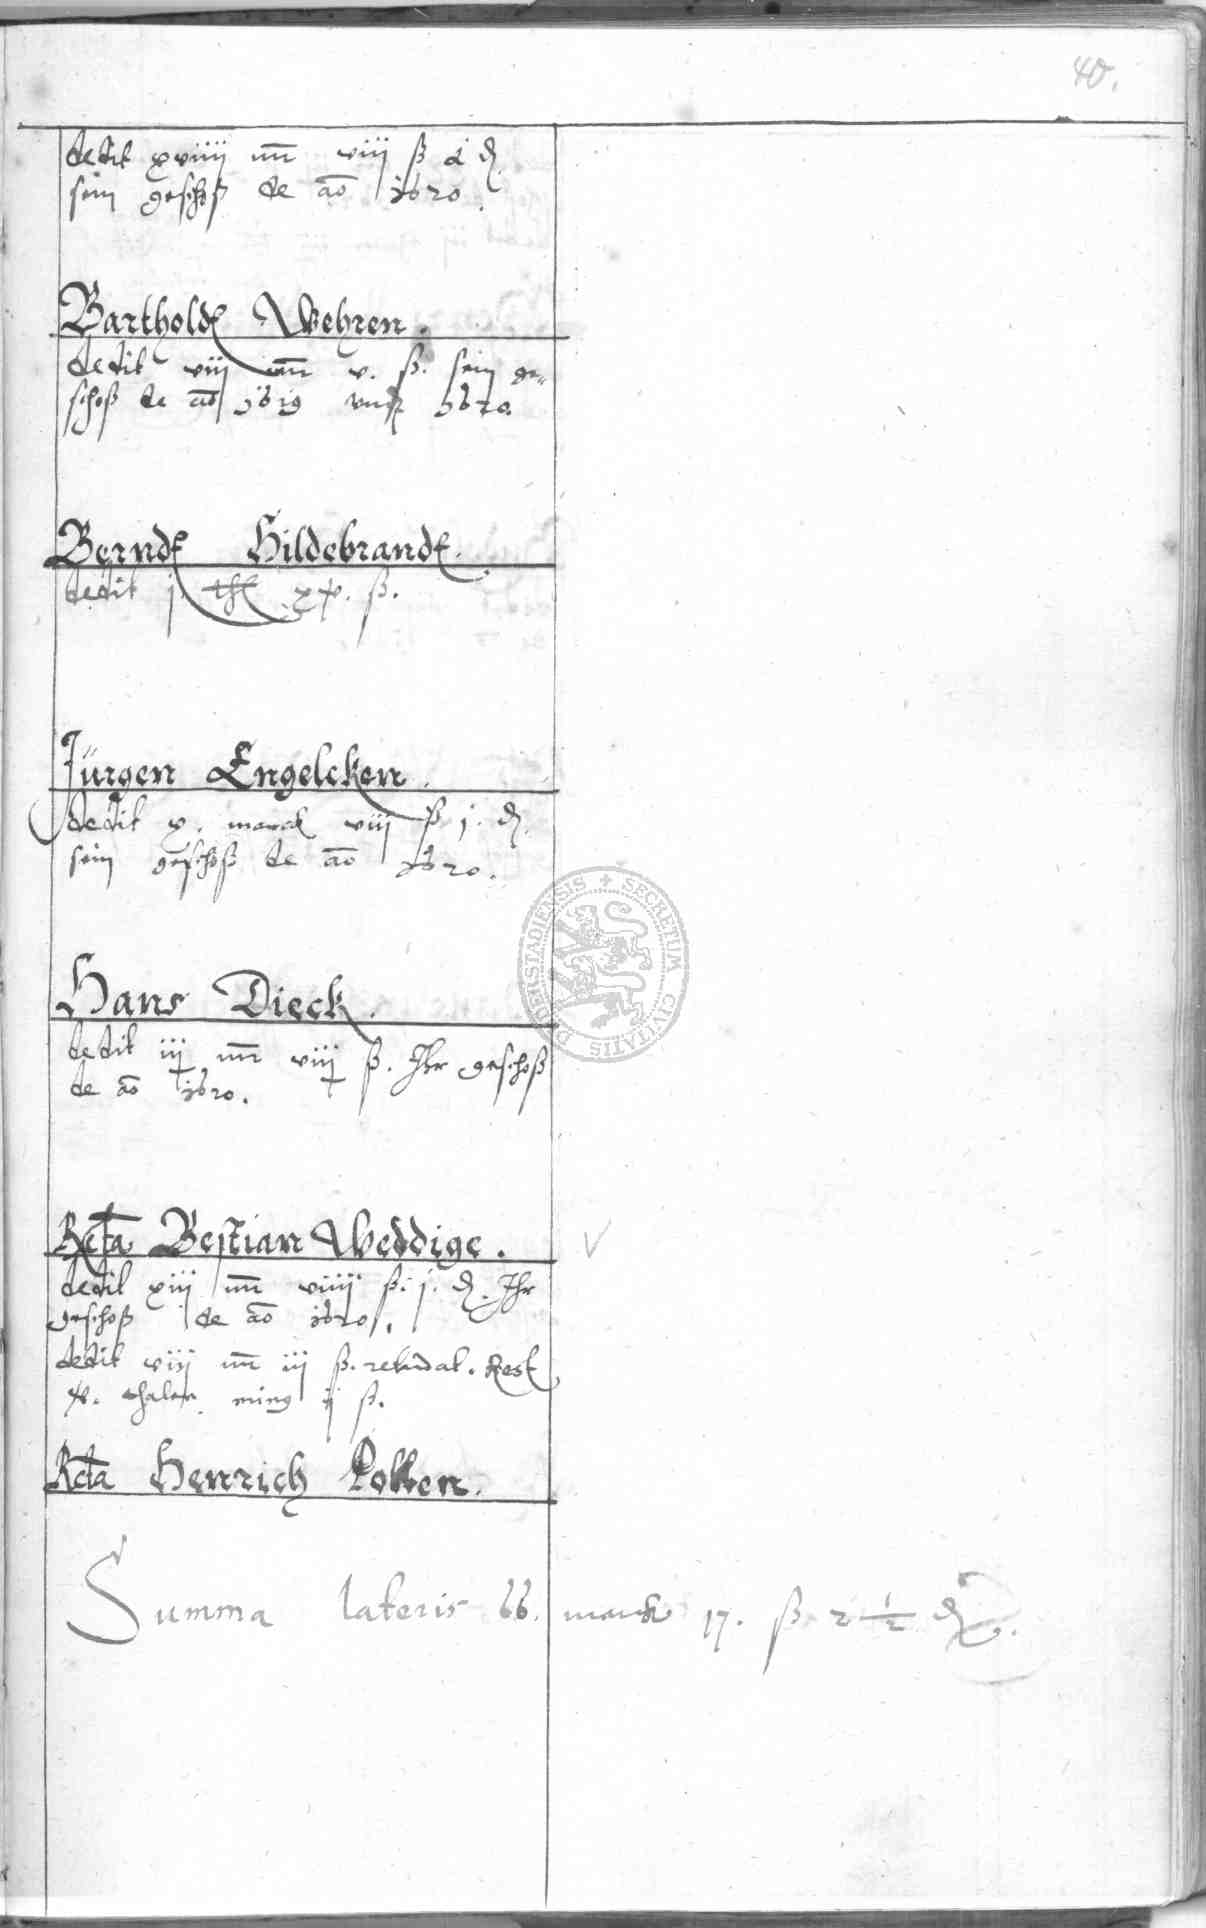 40.
dedit xviiij mr viij ß d
sein geschoß de ao 1620.
Barthold Wehren.
dedit viij mr v. ß. sein ge-
schoß de ao 1619 vnd 1620
Bernd Hildebrand.
dedit j thl xx. ß.
Jürgen Engelcken.
dedit x. marck viij ß j. d.
sein geschoß de ao 1620.
Hans Dieck.
dedit iij mr viij ß. Ihr geschoß
de ao 1620.
Rcta Bestian Weddige.
dedit xiij mr viiij ß. j. d. Ihr
geschoß de ao 1620.
dedit viij mr iij ß. Rest
x. thaler ij ß.
Rcta Henrich Polten.
Summa lateris 66. marck 17. ß 2 1/2 d.
SECRETUM CIVITATIS DUDERSTADIENSIS